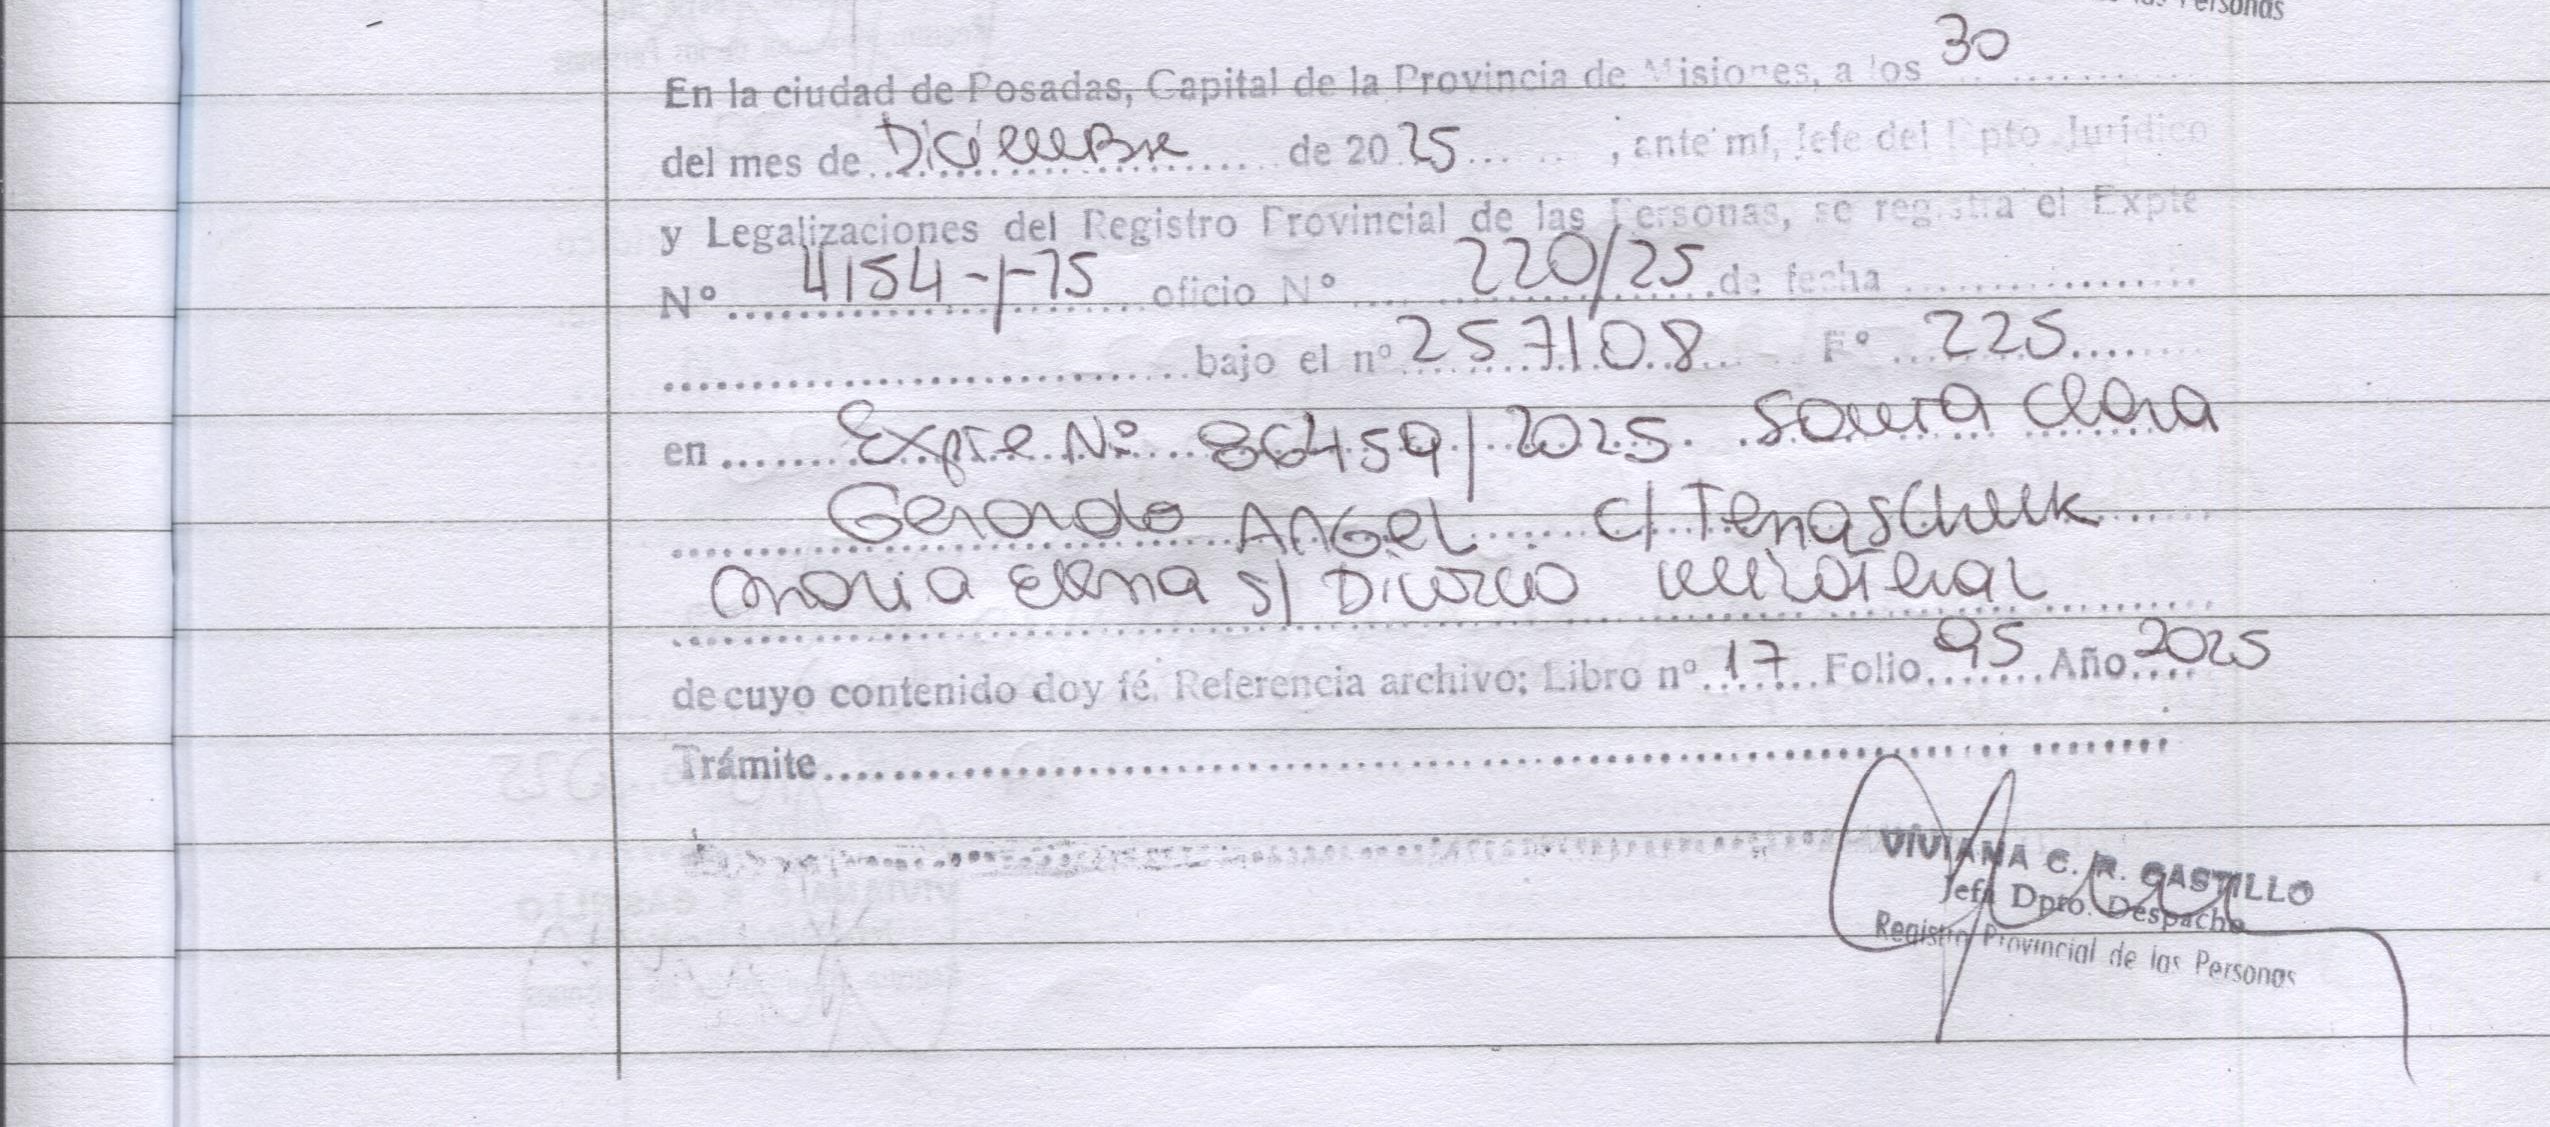 las Personas
En la ciudad de Posadas, Capital de la Provincia de Misiones, a los 30
del mes de Diciembre de 2025, ante mí, Jefe del Dpto Jurídico
y Legalizaciones del Registro Provincial de las Personas, se registra el Expte
Nº 4154-1-75 oficio Nº 220/25 de fecha
bajo el nº 257108 Fº 225
en Expte Nº 86459/2025 Clara
Gerardo Angel c/ Tenaschuk
Maria Elena s/ Divorcio
de cuyo contenido doy fé. Referencia archivo; Libro nº 17 Folio 95 Año 2025
Trámite
VIVIANA C. R. CASTILLO
Jefa Dpto. Despacho
Registro Provincial de las Personas